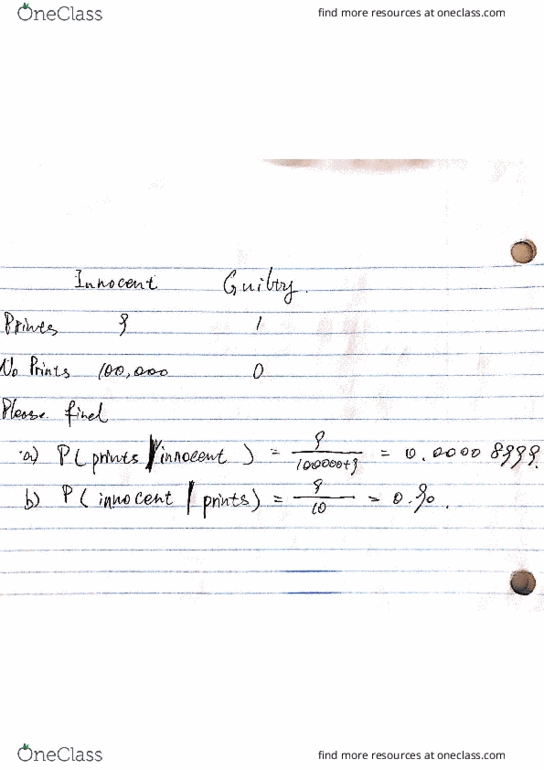 OneClass find more resources at oneclass.com
Innocent Guilty.
Prints 9 1
No Prints 100,000 0
Please find
a) P( prints / innocent ) = 9 / 100000+9 = 0.00008999.
b) P( innocent / prints) = 9 / 10 = 0.90.
OneClass find more resources at oneclass.com